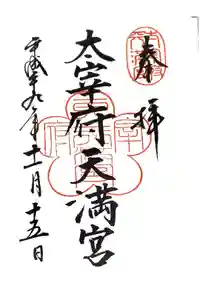 奉拝
太宰府天満宮
平成十九年十一月十五日